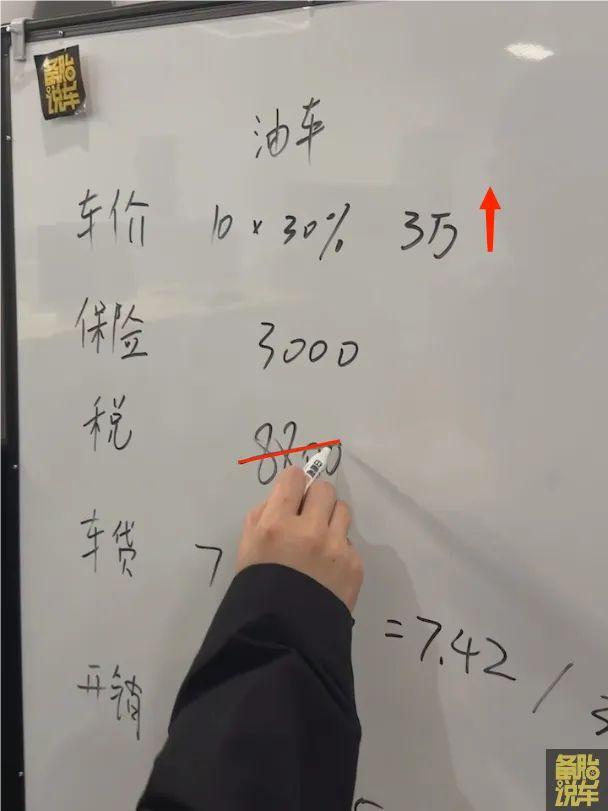 备胎
说车
油车
车价 10 × 30% 3万
保险 3000
税 8800
车贷 7
= 7.42 /
开销
备胎
说车